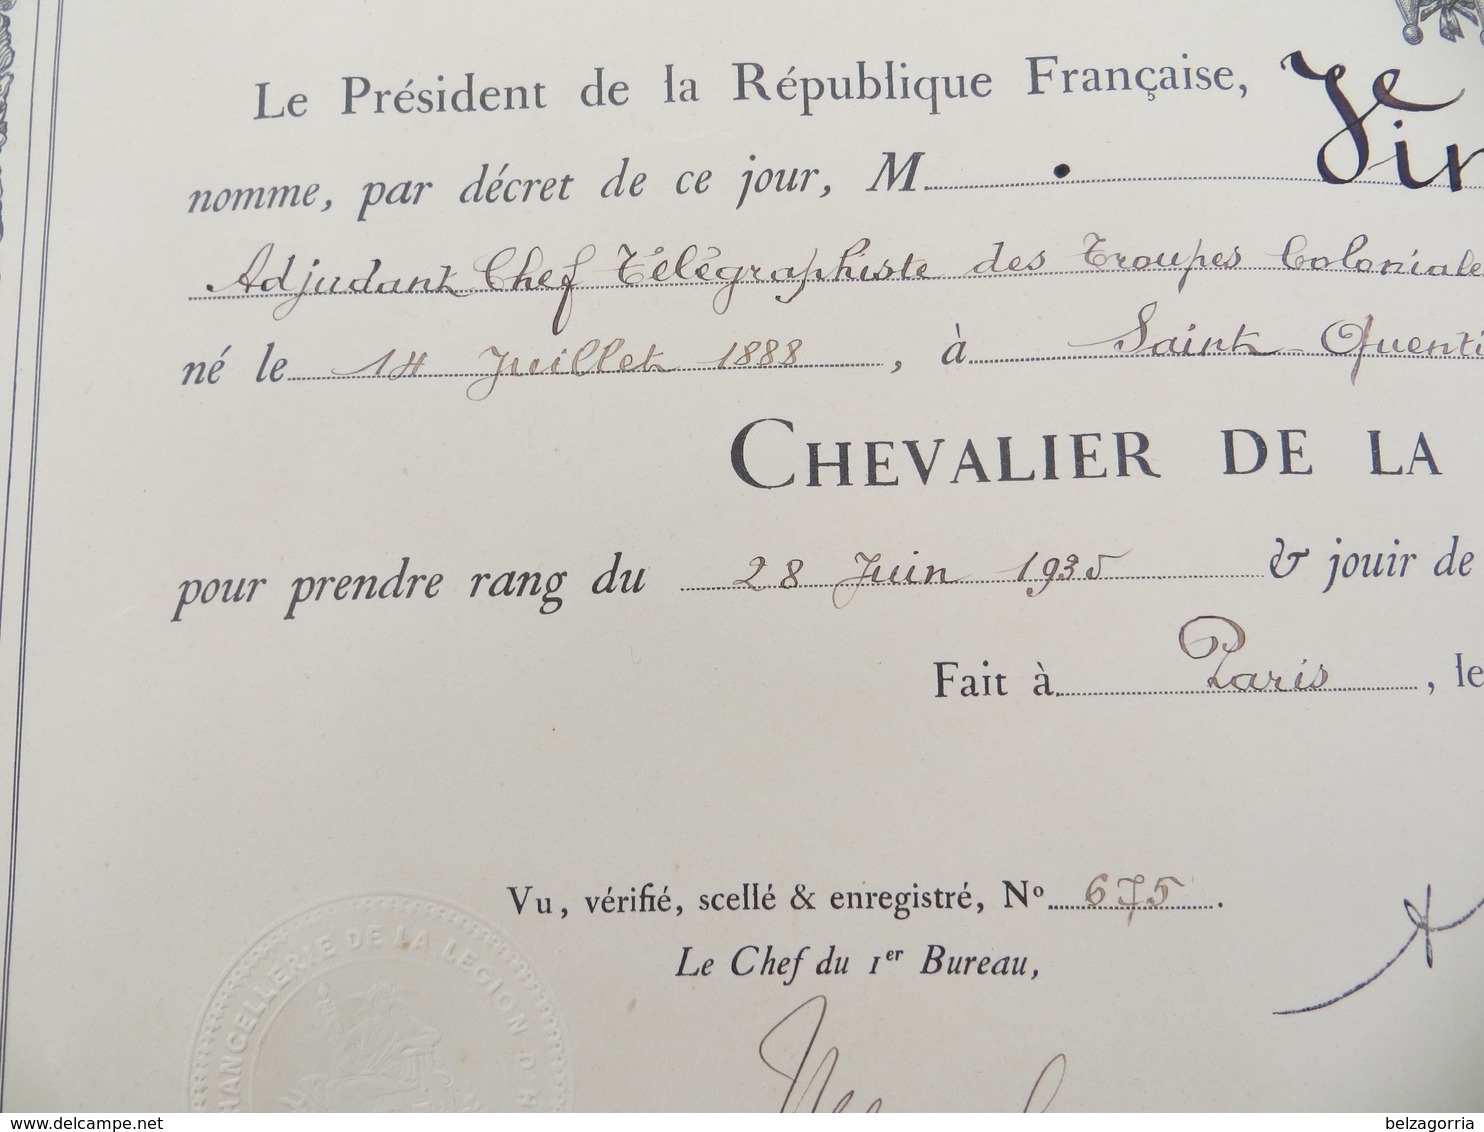 Le Président de la République Française,
nomme, par décret de ce jour, M
Adjudant Chef Télégraphiste des Troupes Coloniale
né le 14 Juillet 1888, à Saint Quenti
CHEVALIER DE LA
pour prendre rang du 28 Juin 1935 & jouir de
Fait à Paris, le
Vu, vérifié, scellé & enregistré, Nº 675.
Le Chef du 1er Bureau,
HANCELLERIE DE LA LEGION D H
delcampe.net
belzagorria